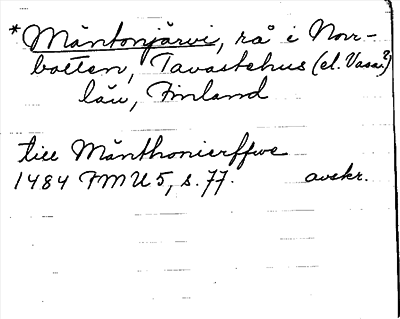 *Mäntonjärvi, rå i Norr-
botten, Tavastehus (el. Vasa?)
län, Finland
till Mänthonierffwe
1484 FMU 5, s. 77. avskr.